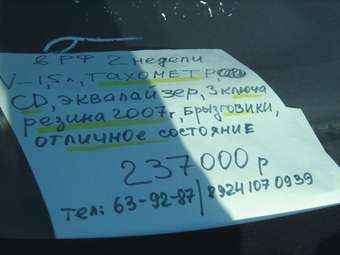 в РФ 2 недели
V-1,5л, ТАХОМЕТР,
CD, эквалайзер, 3 ключа
резина 2007г, Брызговики,
отличное состояние
237000 р
тел: 63-92-87/89241070939